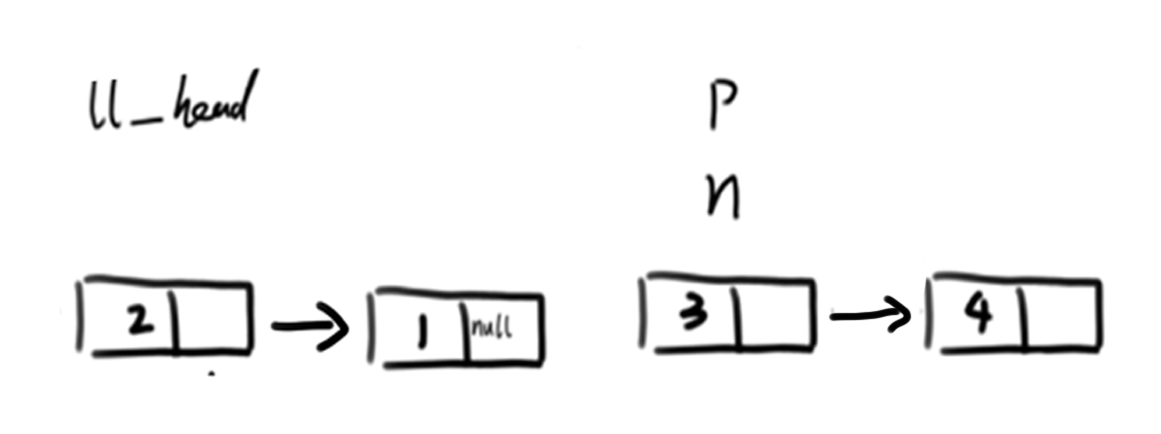 ll_head
P
n
2 1 null 3 4